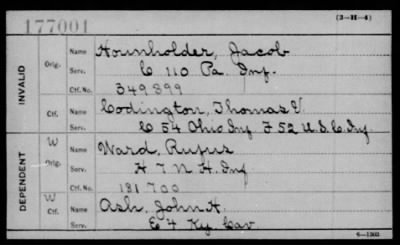 177001
(3-H-4)
INVALID
Orig.
Name Hornholder, Jacob
Serv. C 110 Pa. Inf.
Ctf. No. 349899
Ctf.
Name Codington, Thomas V.
Serv. C 54 Ohio Inf F 52 U.S.C. Inf
DEPENDENT
W
Orig.
Name Ward, Rufus
Serv. H 7 N H. Inf
Ctf. No. 131700
W
Ctf.
Name Ash, John H.
Serv. E 4 Ky Cav